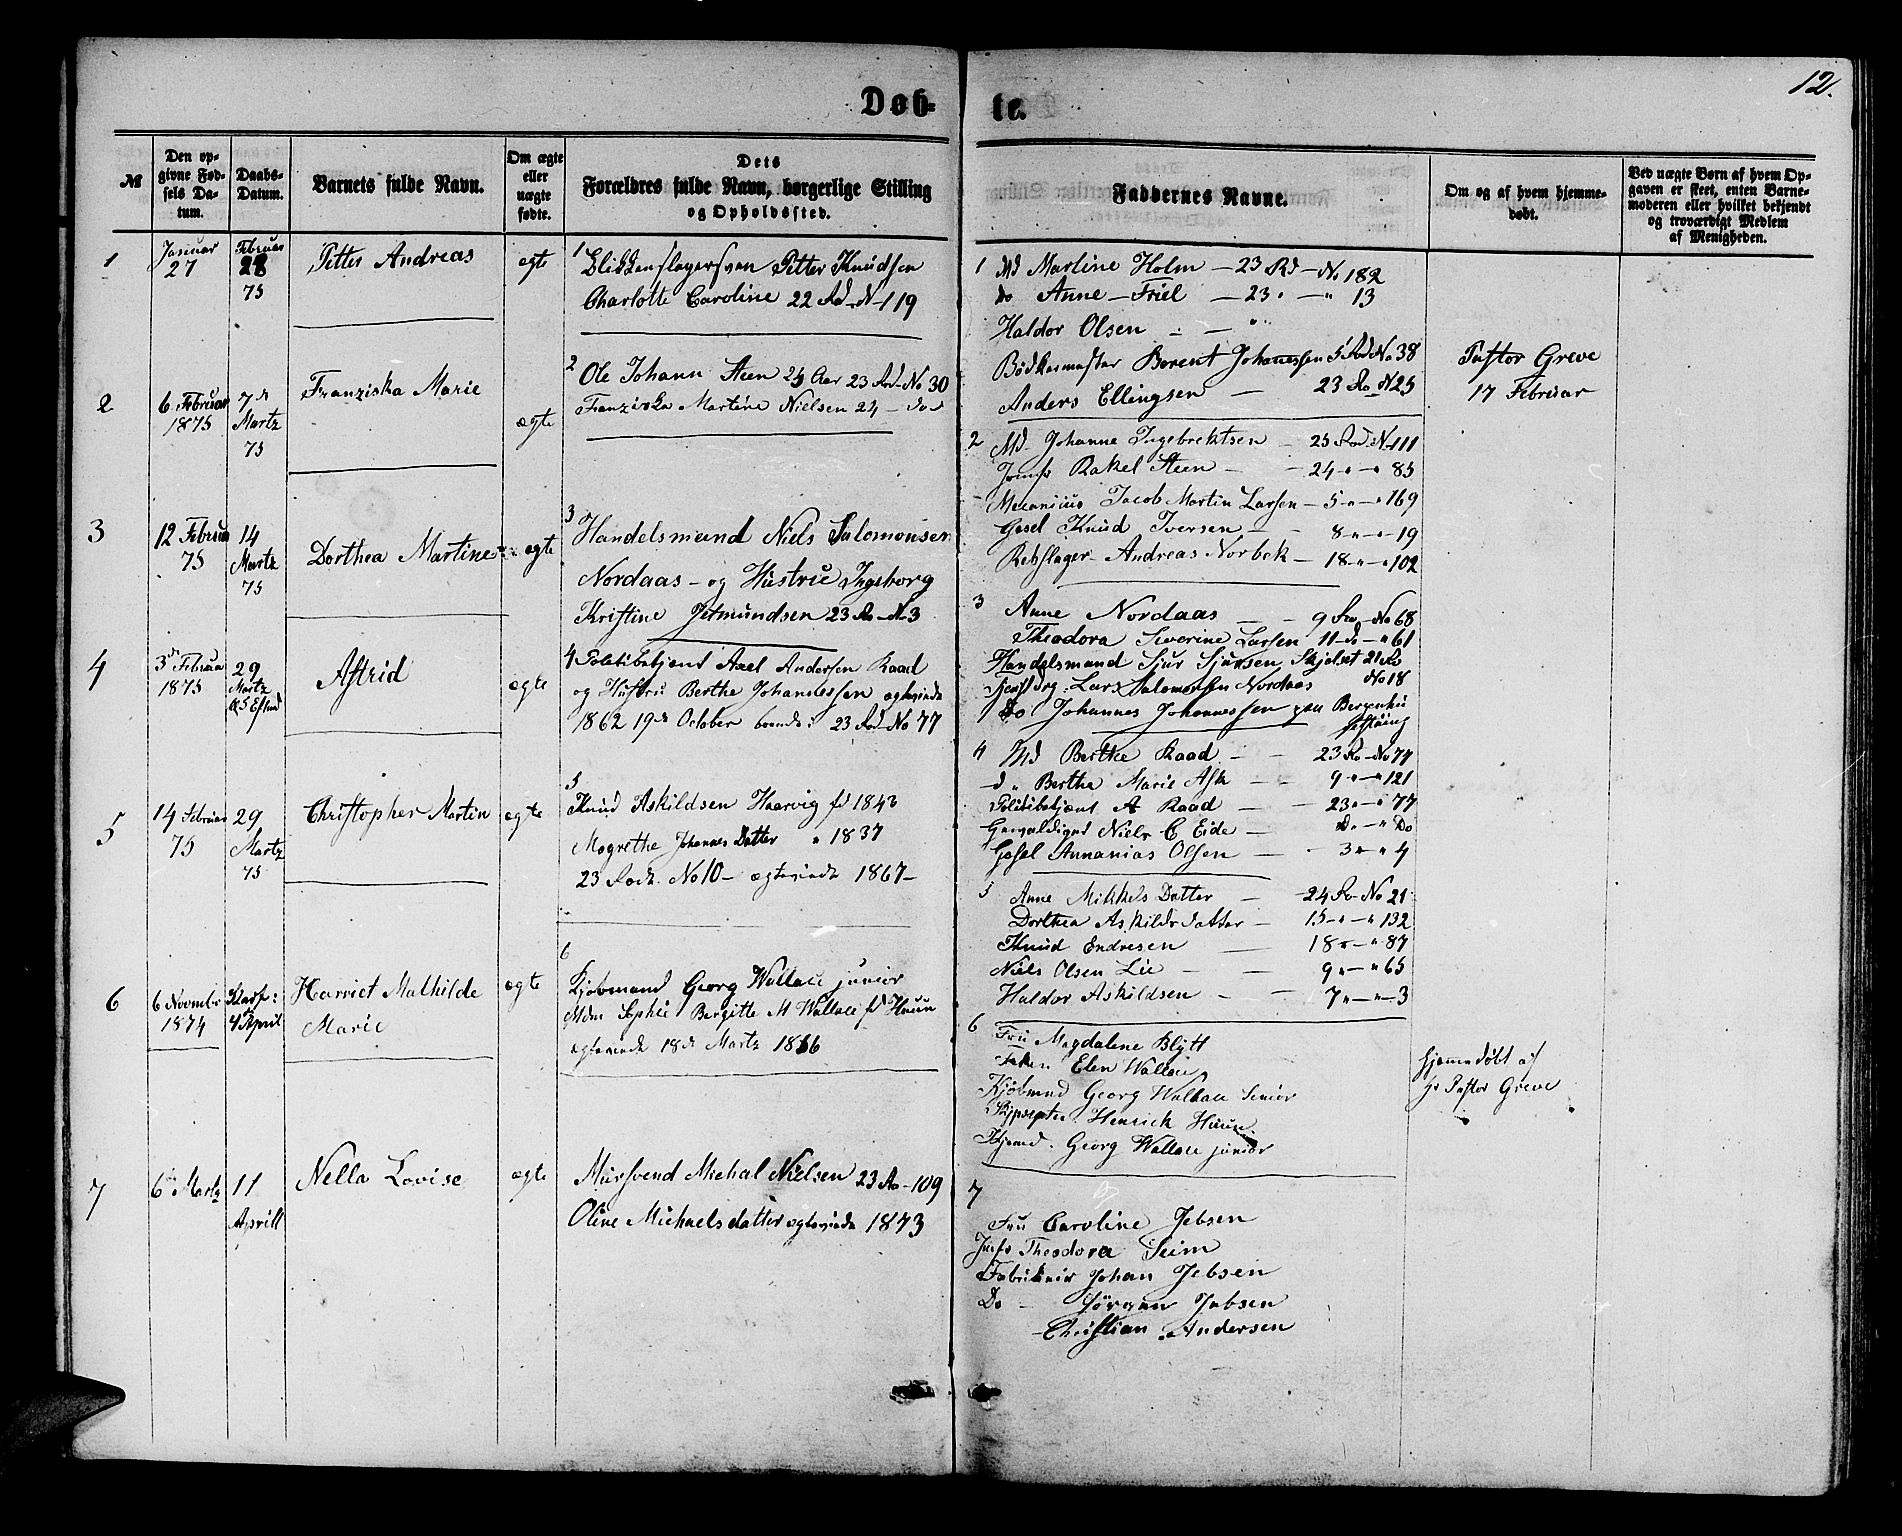 12.
Døb-
te.
№
Den op-
givne Fød-
sels Da-
tum.
Daabs-
Datum.
Barnets fulde Navn.
Om ægte
eller
uægte
fødte.
Dets
Forældres fulde Navn, borgerlige Stilling
og Opholdssted.
Faddernes Navne.
Om og af hvem hjemme-
døbt.
Ved uægte Børn af hvem Op-
gaven er skeet, enten Barne-
moderen eller hvilket bekjendt
og troværdigt Medlem
af Menigheden.
1
Januar
27
Februar
28
75
Petter Andreas
ægte
1 Blikkenslagersven Petter Knudsen
Charlotte Caroline 22 Rd-N-119
1 Md Martine Holm - 23 Rd - No 182
Do Anne - Friel - 23 " - " 13
Haldor Olsen " - "
Bødkermester Berent Johannessen 5 Rod No 38
Anders Ellingsen - 23 Ro N25
2
6 Februar
1875
7de
Martz
75
Franziska Marie
ægte
2 Ole Johann Steen 25 Aar 23 Rod-No 30
Franziska Martine Nielsen 24 - do-
2 Md Johanne Ingebrektsen - 25 Rod. N-111
Jomfr Rakel Steen - 24 - " - " 85
Mecanicus Jacob Martin Larsen - 5 - " - " 169
Gesel Knud Iversen - 8 - " - " 19
Rebslager Andreas Norbek - 18 - " - " 102
Pastor Greve
17 Februar
3
12 Februar
75
14
Martz
75
Dorthea Martine
ægte
3 Handelsmand Niels Salomonsen
Nordaas - og Hustrue Ingeborg
Kristine Jetmundsen 23 Ro-No 3
3 Anne Nordaas - 9 Ro - No 68
Theodora Severine Larsen 11 - do - " 61
Handelsmand Sjur Sjursen Skjelset 21 Ro
No 18
Lars Salomonsen Nordaas
Do Johannes Johannessen paa Bergenhus
Festning
4
3de Februar
1875
29
Martz
Astrid
ægte
4 Politibetjent Axel Andersen Raad
og Hustru Berthe Johannessen egteviede
1862 19de October boende: 23 Rod-No 77
4 Md Berthe Raad - 23 Ro - No 77
d " Bertha Marie Ask - 9 " - " 121
Politibetjent A Raad - 23 " - " 77
Gevaldiger Niels C Eide - Do - " Do
Gesel Annanias Olsen - 3 " - " 4
5
14 Februar
75
29
Martz
75
Christopher Martin
ægte
5
Knud Askildsen Haarvig fd 1843
Magrethe Johannes Datter " 1837
23 Rode No 10 - egteviede 1867 -
5 Anne Mikkels Datter - 24 Ro - No 21
Dorthea Askilds datter - 15 - " - " 132
Knud Endresen - 18 " - " 87
Niels Olsen Lie - 9 " - " 65
Haldor Askildsen - 7 " - " - 3
6
6 Novembr
1874
4 April
Harriet Mathilde
Marie
ægte
6
Kjøbmand Georg Wallace junior
Mdm Sophie Bergitte M Wallace fd Huun
egteviede 18de Martz 1866
6 Fru Magdalene Blytt
Frøken Elen Wallace
Kjøbmnd Georg Wallace Senior
Henrick Huun
Kjømd. Georg Wallace junior
hjemmedøbt af
hr Pastor Greve
7
6te Martz
11
Aprill
Nella Lovise
ægte
Mursvend Michal Nielsen 23 Ro - 109
Oline Michaelsdatter egteviede 1873
7
Fru Caroline Jebsen
Jmfr Theodora Seim
Fabrikeier Johan Jebsen
Do - Jørgen Jebsen
- Christian Andersen